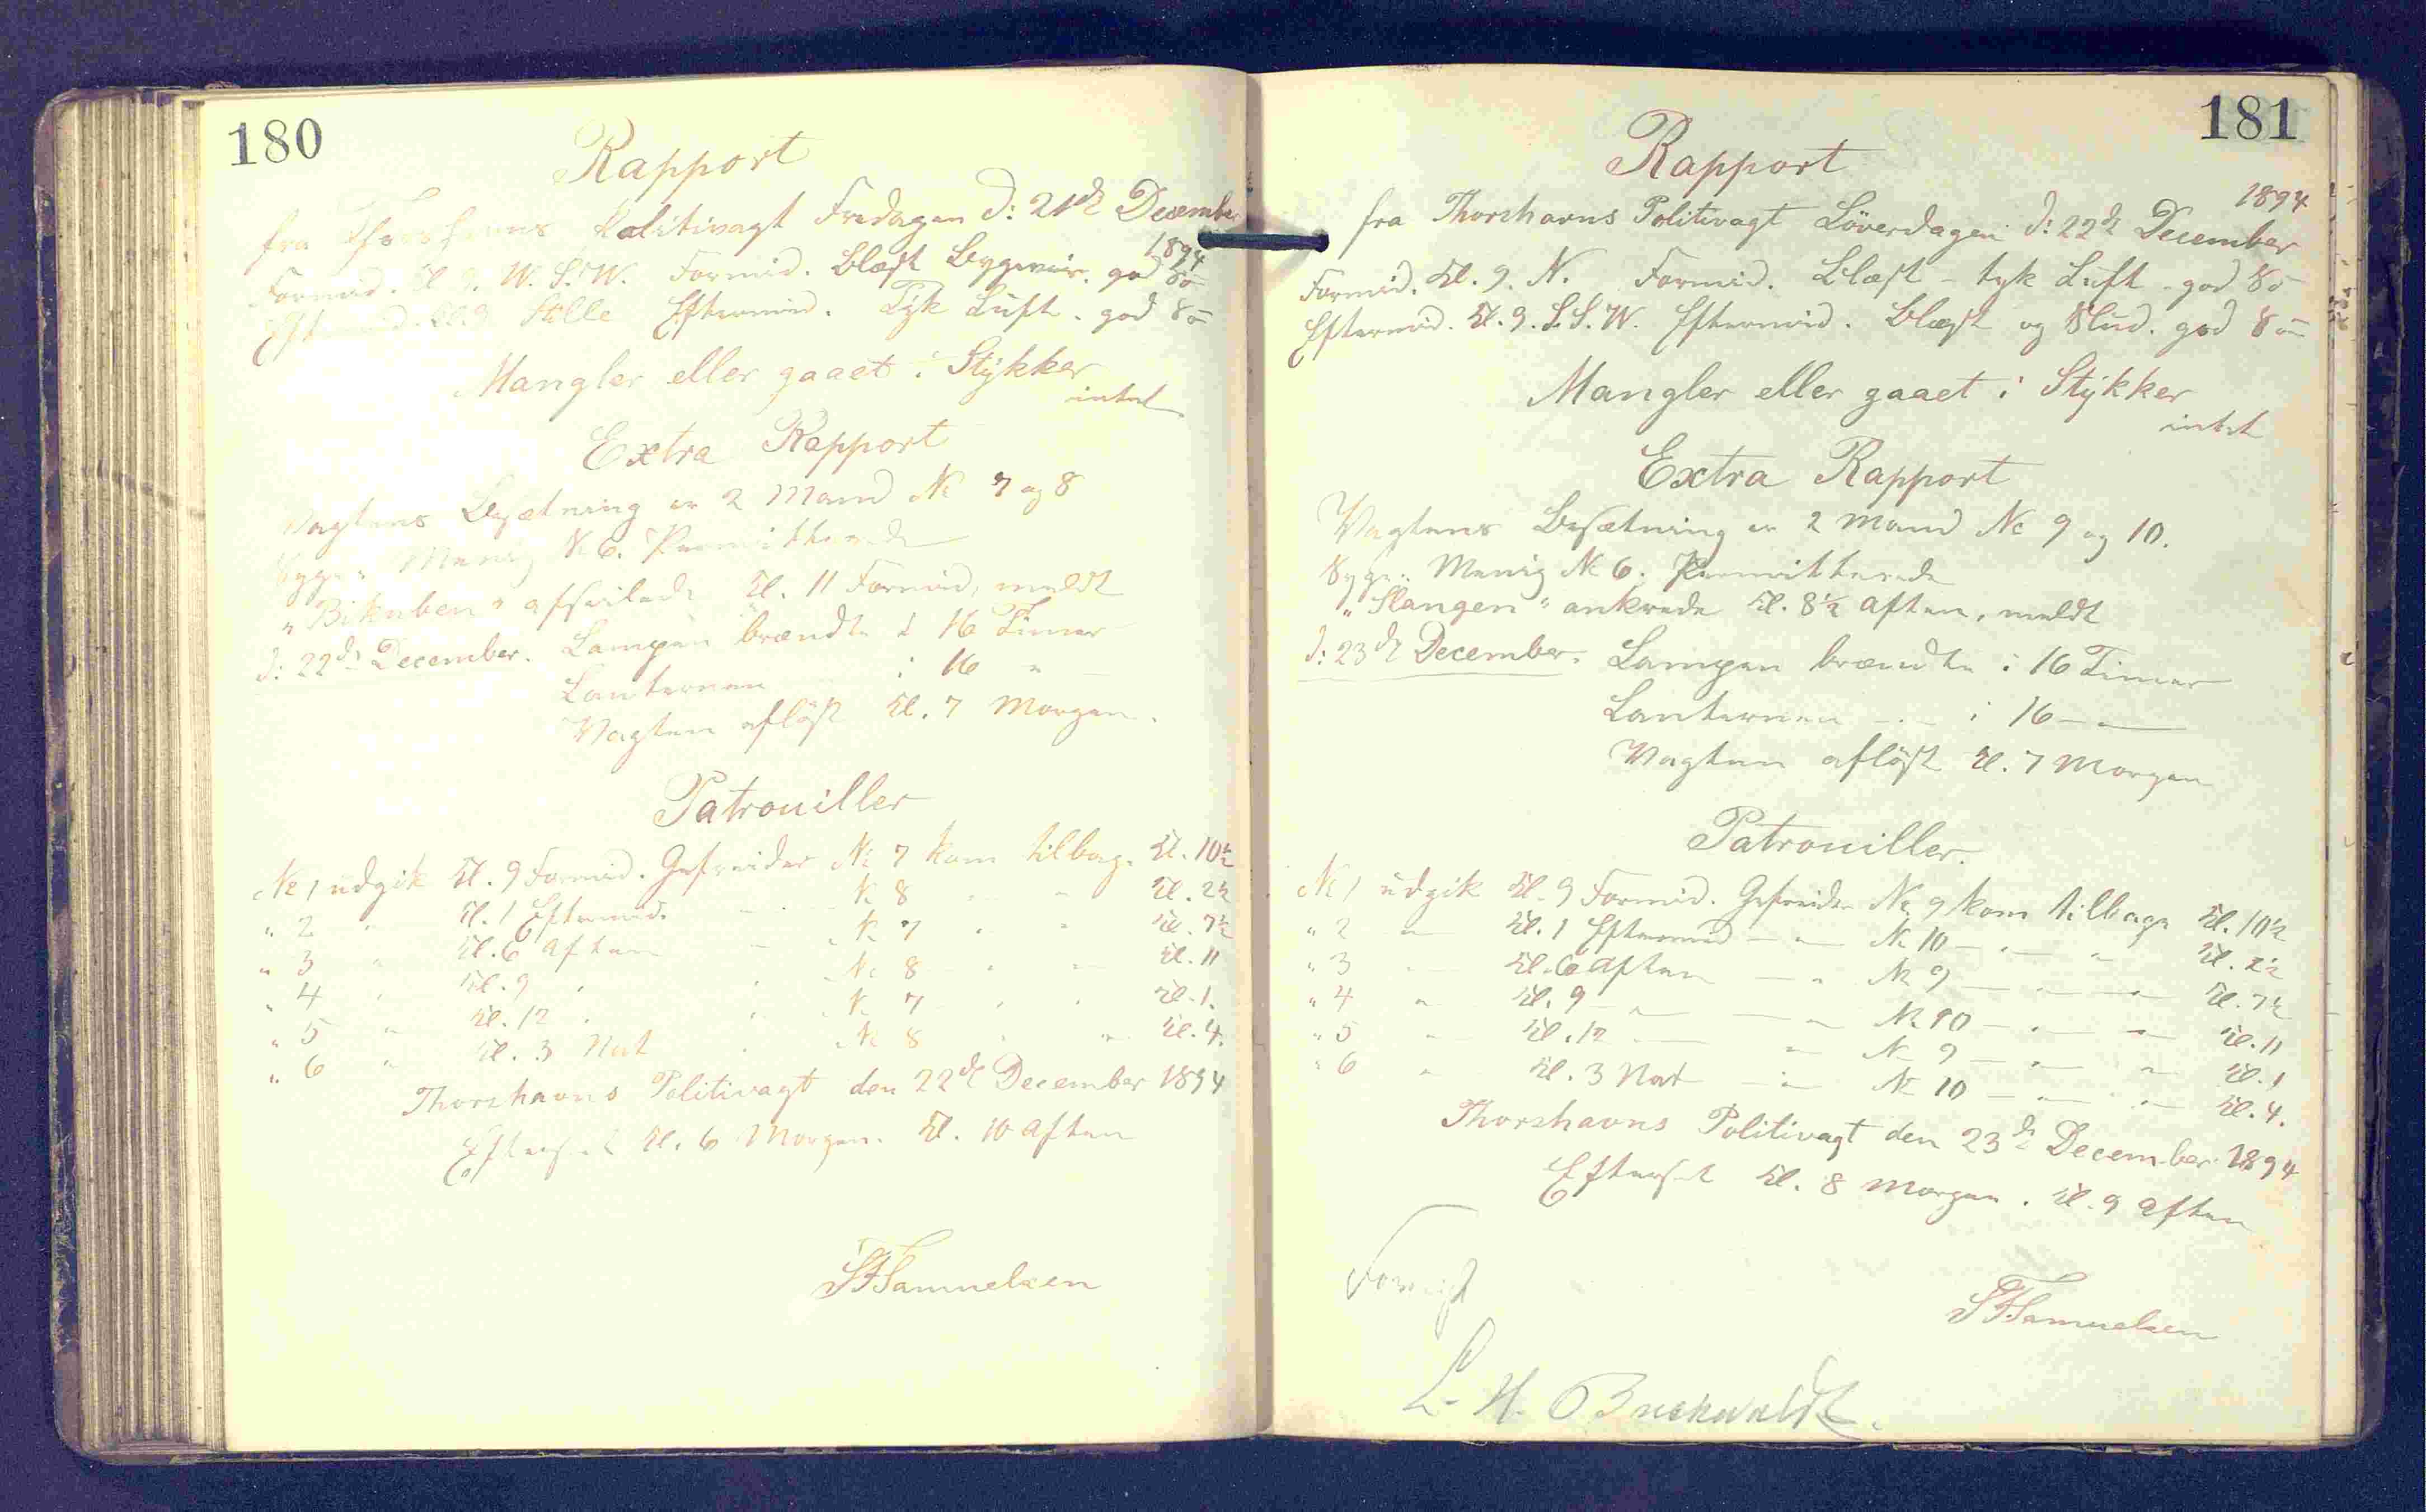 180
Rapport
fra Thorshavns Politivagt Fredagen d: 21de December
1894
Formid. Kl. 9. W.S.W. Formid. Blæst Bygeveir. god Sö
Eftermid. Kl. 9 Stille Eftermid. Tyk Luft. god Sö
Mangler eller gaaet i Stÿkker
intet
Extra Rapport
Vagtens Besætning er 2 Mand No 7 og 8
Syge: Menig No 6. Permitterede
"Bikuben" afseilede Kl. 11 Formid, meldt
d: 22de December. Lampen brændte i 16 Timer
Lanternen i 16 "
Vagten aflöst Kl. 7 Morgen.
Patrouiller
No 1 udgik Kl. 9 Formid. Gefreider No 7 kom tilbage Kl. 10½
" 2 " Kl. 1 Eftermid. " No 8 " " Kl. 2½
" 3 " Kl. 6 Aften " No 7 " " Kl. 7½
" 4 " Kl. 9 " " No 8 " " Kl. 11
" 5 " Kl. 12 " " No 7 " " Kl. 1.
" 6 " Kl. 3 Nat " No 8 " " Kl. 4.
Thorshavns Politivagt den 22de December 1894
Efterset Kl. 6 Morgen. Kl. 10 Aften
SFSamuelsen
181
Rapport
1894
fra Thorshavns Politivagt Löverdagen d: 22de December
Formid. Kl. 9. N. Formid. Blæst - tyk Luft - god Sö
Eftermid. Kl. 9. S.S.W. Eftermid. Blæst og Slud. god Sö
Mangler eller gaaet i Stÿkker
intet
Extra Rapport
Vagtens Besætning er 2 Mand No 9 og 10.
Syge: Menig No 6. Permitterede
"Slangen" ankrede Kl. 8½ Aften, meldt
d: 23de December. Lampen brændte i 16 Timer
Lanternen - " - i 16 - " -
Vagten aflöst Kl. 7 Morgen
Patrouiller.
No 1 udgik Kl. 9 Formid. Gefreider No 9 kom tilbage Kl. 10½
" 2 " Kl. 1 Eftermid - " - No 10 - " - " Kl. 2½
" 3 " Kl. 6 Aften - " No 9 - " - " Kl. 7½
" 4 " Kl. 9 - " - " No 10 - " - " Kl. 11
" 5 " Kl. 12 - " No 9 - " - " Kl. 1
" 6 " Kl. 3 Nat - " - No 10 - " - " Kl. 4.
Thorshavns Politivagt den 23de December 1894
Efterset Kl. 8 Morgen. Kl. 9 Aften
Forevist
SFSamuelsen
L. H. Buchwaldt.